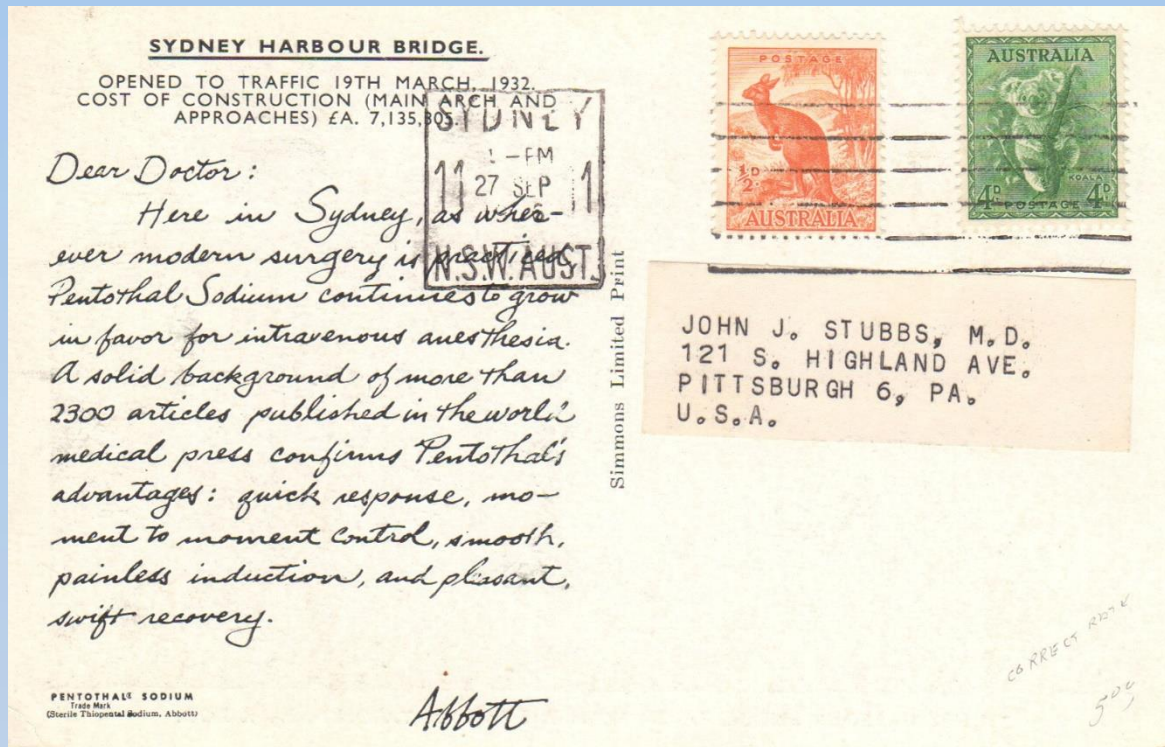 SYDNEY HARBOUR BRIDGE.
OPENED TO TRAFFIC 19TH MARCH, 1932.
COST OF CONSTRUCTION (MAIN ARCH AND
APPROACHES) £A. 7,135,805.
SYDNEY
1-PM
11 27 SEP 11
N.S.W. AUST.
Dear Doctor:
Here in Sydney, as wher-
ever modern surgery is practiced,
Pentothal Sodium continues to grow
in favor for intravenous anesthesia.
A solid background of more than
2300 articles published in the world
medical press confirms Pentothal's
advantages: quick response, mo-
ment to moment control, smooth,
painless induction, and pleasant,
swift recovery.
Abbott
PENTOTHAL SODIUM
Trade Mark
(Sterile Thiopental Sodium, Abbott)
Simmons Limited Print
POSTAGE
½D.
AUSTRALIA
AUSTRALIA
KOALA
4D POSTAGE 4D
JOHN J. STUBBS, M.D.
121 S. HIGHLAND AVE.
PITTSBURGH 6, PA.
U.S.A.
CORRECT RATE